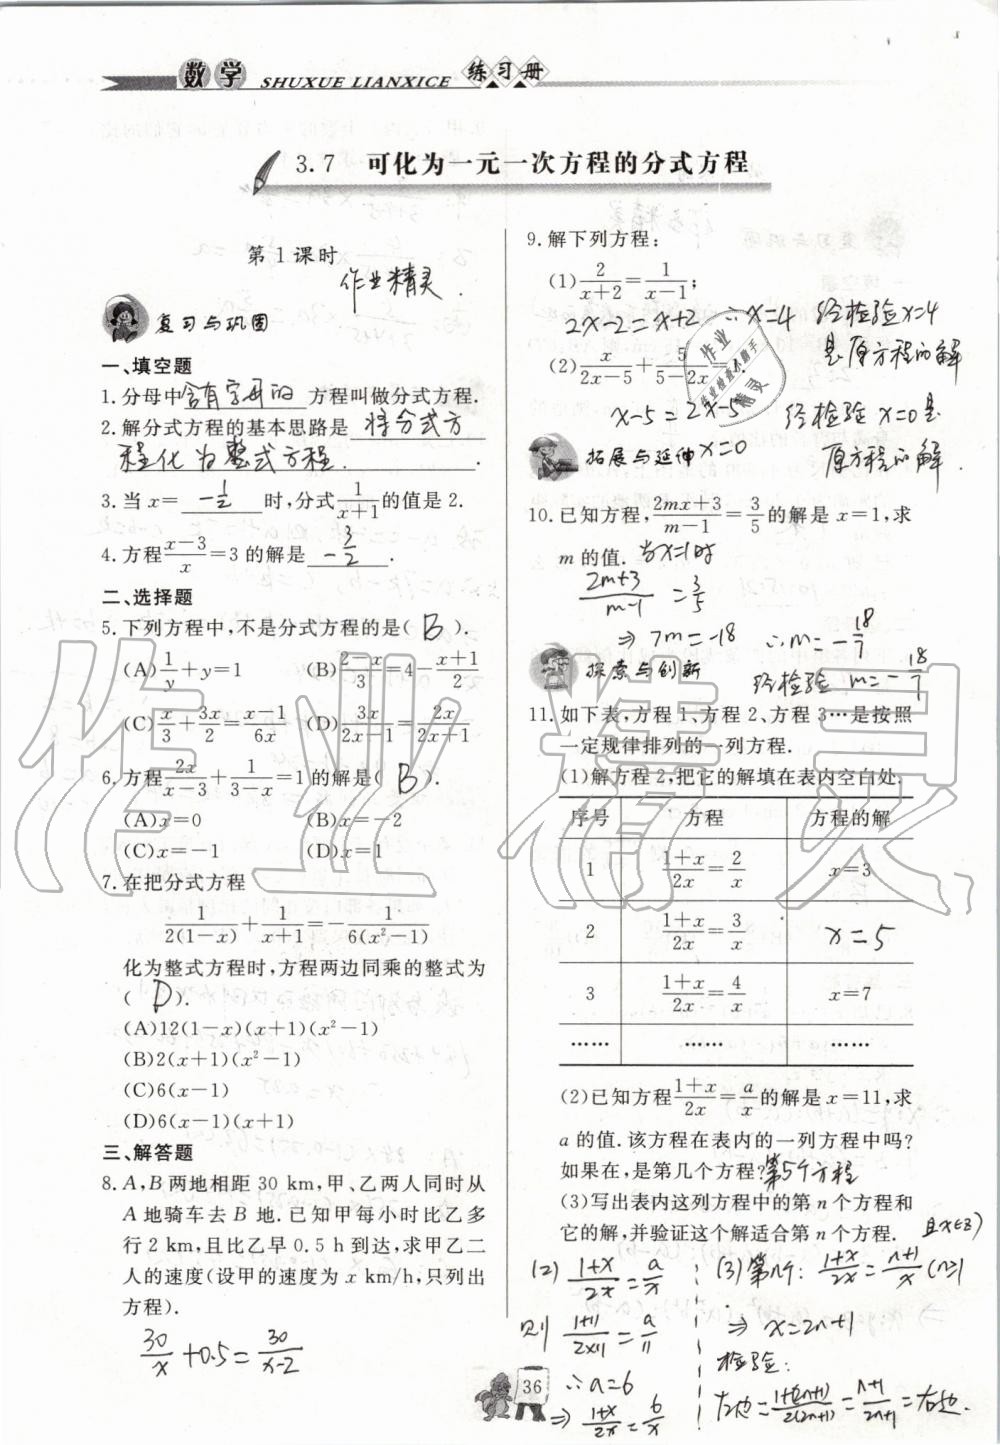 数学 SHUXUE LIANXICE 练习册
3.7 可化为一元一次方程的分式方程
第1课时
作业精灵.
复习与巩固
一、填空题
1.分母中含有字母的方程叫做分式方程.
2.解分式方程的基本思路是将分式方
程化为整式方程.
3.当x=-1/2时,分式1/(x+1)的值是2.
4.方程(x-3)/x=3的解是-3/2.
二、选择题
5.下列方程中,不是分式方程的是( B ).
(A)1/y+y=1 (B)(2-x)/3=4-(x+1)/2
(C)x/3+3x/2=(x-1)/6x (D)3x/(2x-1)=2x/(2x+1)
6.方程2x/(x-3)+1/(3-x)=1的解是( B ).
(A)x=0 (B)x=-2
(C)x=-1 (D)x=1
7.在把分式方程
1/2(1-x)+1/(x+1)=-1/6(x²-1)
化为整式方程时,方程两边同乘的整式为
( D ).
(A)12(1-x)(x+1)(x²-1)
(B)2(x+1)(x²-1)
(C)6(x-1)
(D)6(x-1)(x+1)
三、解答题
8.A,B两地相距30 km,甲、乙两人同时从
A地骑车去B地.已知甲每小时比乙多
行2 km,且比乙早0.5 h到达,求甲乙二
人的速度(设甲的速度为x km/h,只列出
方程).
30/x+0.5=30/(x-2)
9.解下列方程:
(1)2/(x+2)=1/(x-1);
2x-2=x+2 ∴x=4 经检验x=4
是原方程的解
(2)x/(2x-5)+5/(5-2x)=1.
x-5=2x-5 经检验x=0是
x=0 原方程的解.
拓展与延伸
10.已知方程,(2mx+3)/(m-1)=3/5的解是x=1,求
m的值. 当x=1时
(2m+3)/(m-1)=3/5
⇒7m=-18 ∴m=-18/7
经检验m=-18/7
探索与创新
11.如下表,方程1、方程2、方程3…是按照
一定规律排列的一列方程.
(1)解方程2,把它的解填在表内空白处.
序号 方程 方程的解
1 (1+x)/2x=2/x x=3
2 (1+x)/2x=3/x x=5
3 (1+x)/2x=4/x x=7
…… …… ……
(2)已知方程(1+x)/2x=a/x的解是x=11,求
a的值.该方程在表内的一列方程中吗?
如果在,是第几个方程?第5个方程
(3)写出表内这列方程中的第n个方程和
它的解,并验证这个解适合第n个方程.
(2)(1+x)/2x=a/x
则(1+11)/(2×11)=a/11
∴a=6
⇒(1+x)/2x=6/x
(3)第n个:(1+x)/2x=(n+1)/x(n≥1
⇒x=2n+1
检验:
左边=(1+(2n+1))/2(2n+1)=(n+1)/(2n+1)=右边.
36
作业精灵